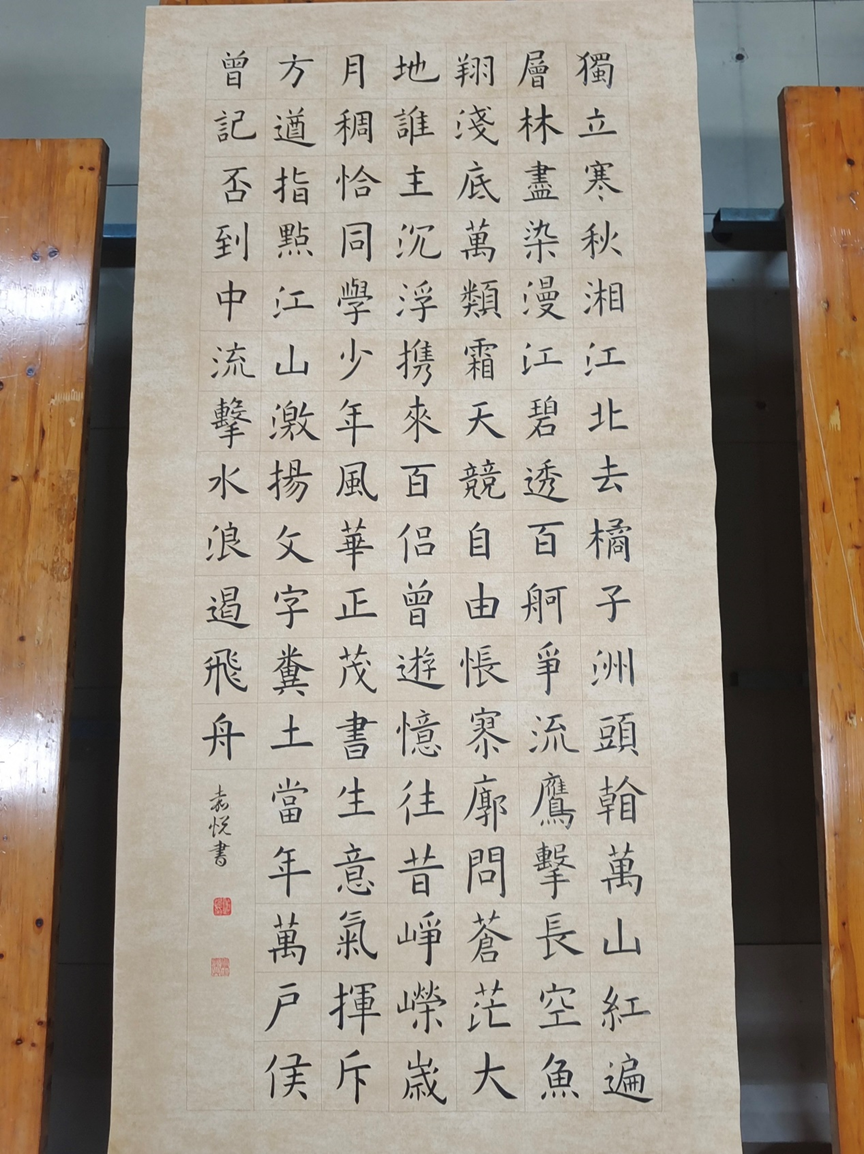 獨立寒秋湘江北去橘子洲頭看萬山紅遍
層林盡染漫江碧透百舸爭流鷹擊長空魚
翔淺底萬類霜天競自由悵寥廓問蒼茫大
地誰主沉浮携來百侶曾遊憶往昔崢嶸歲
月稠恰同學少年風華正茂書生意氣揮斥
方遒指點江山激揚文字糞土當年萬戶侯
曾記否到中流擊水浪遏飛舟
嘉悅書